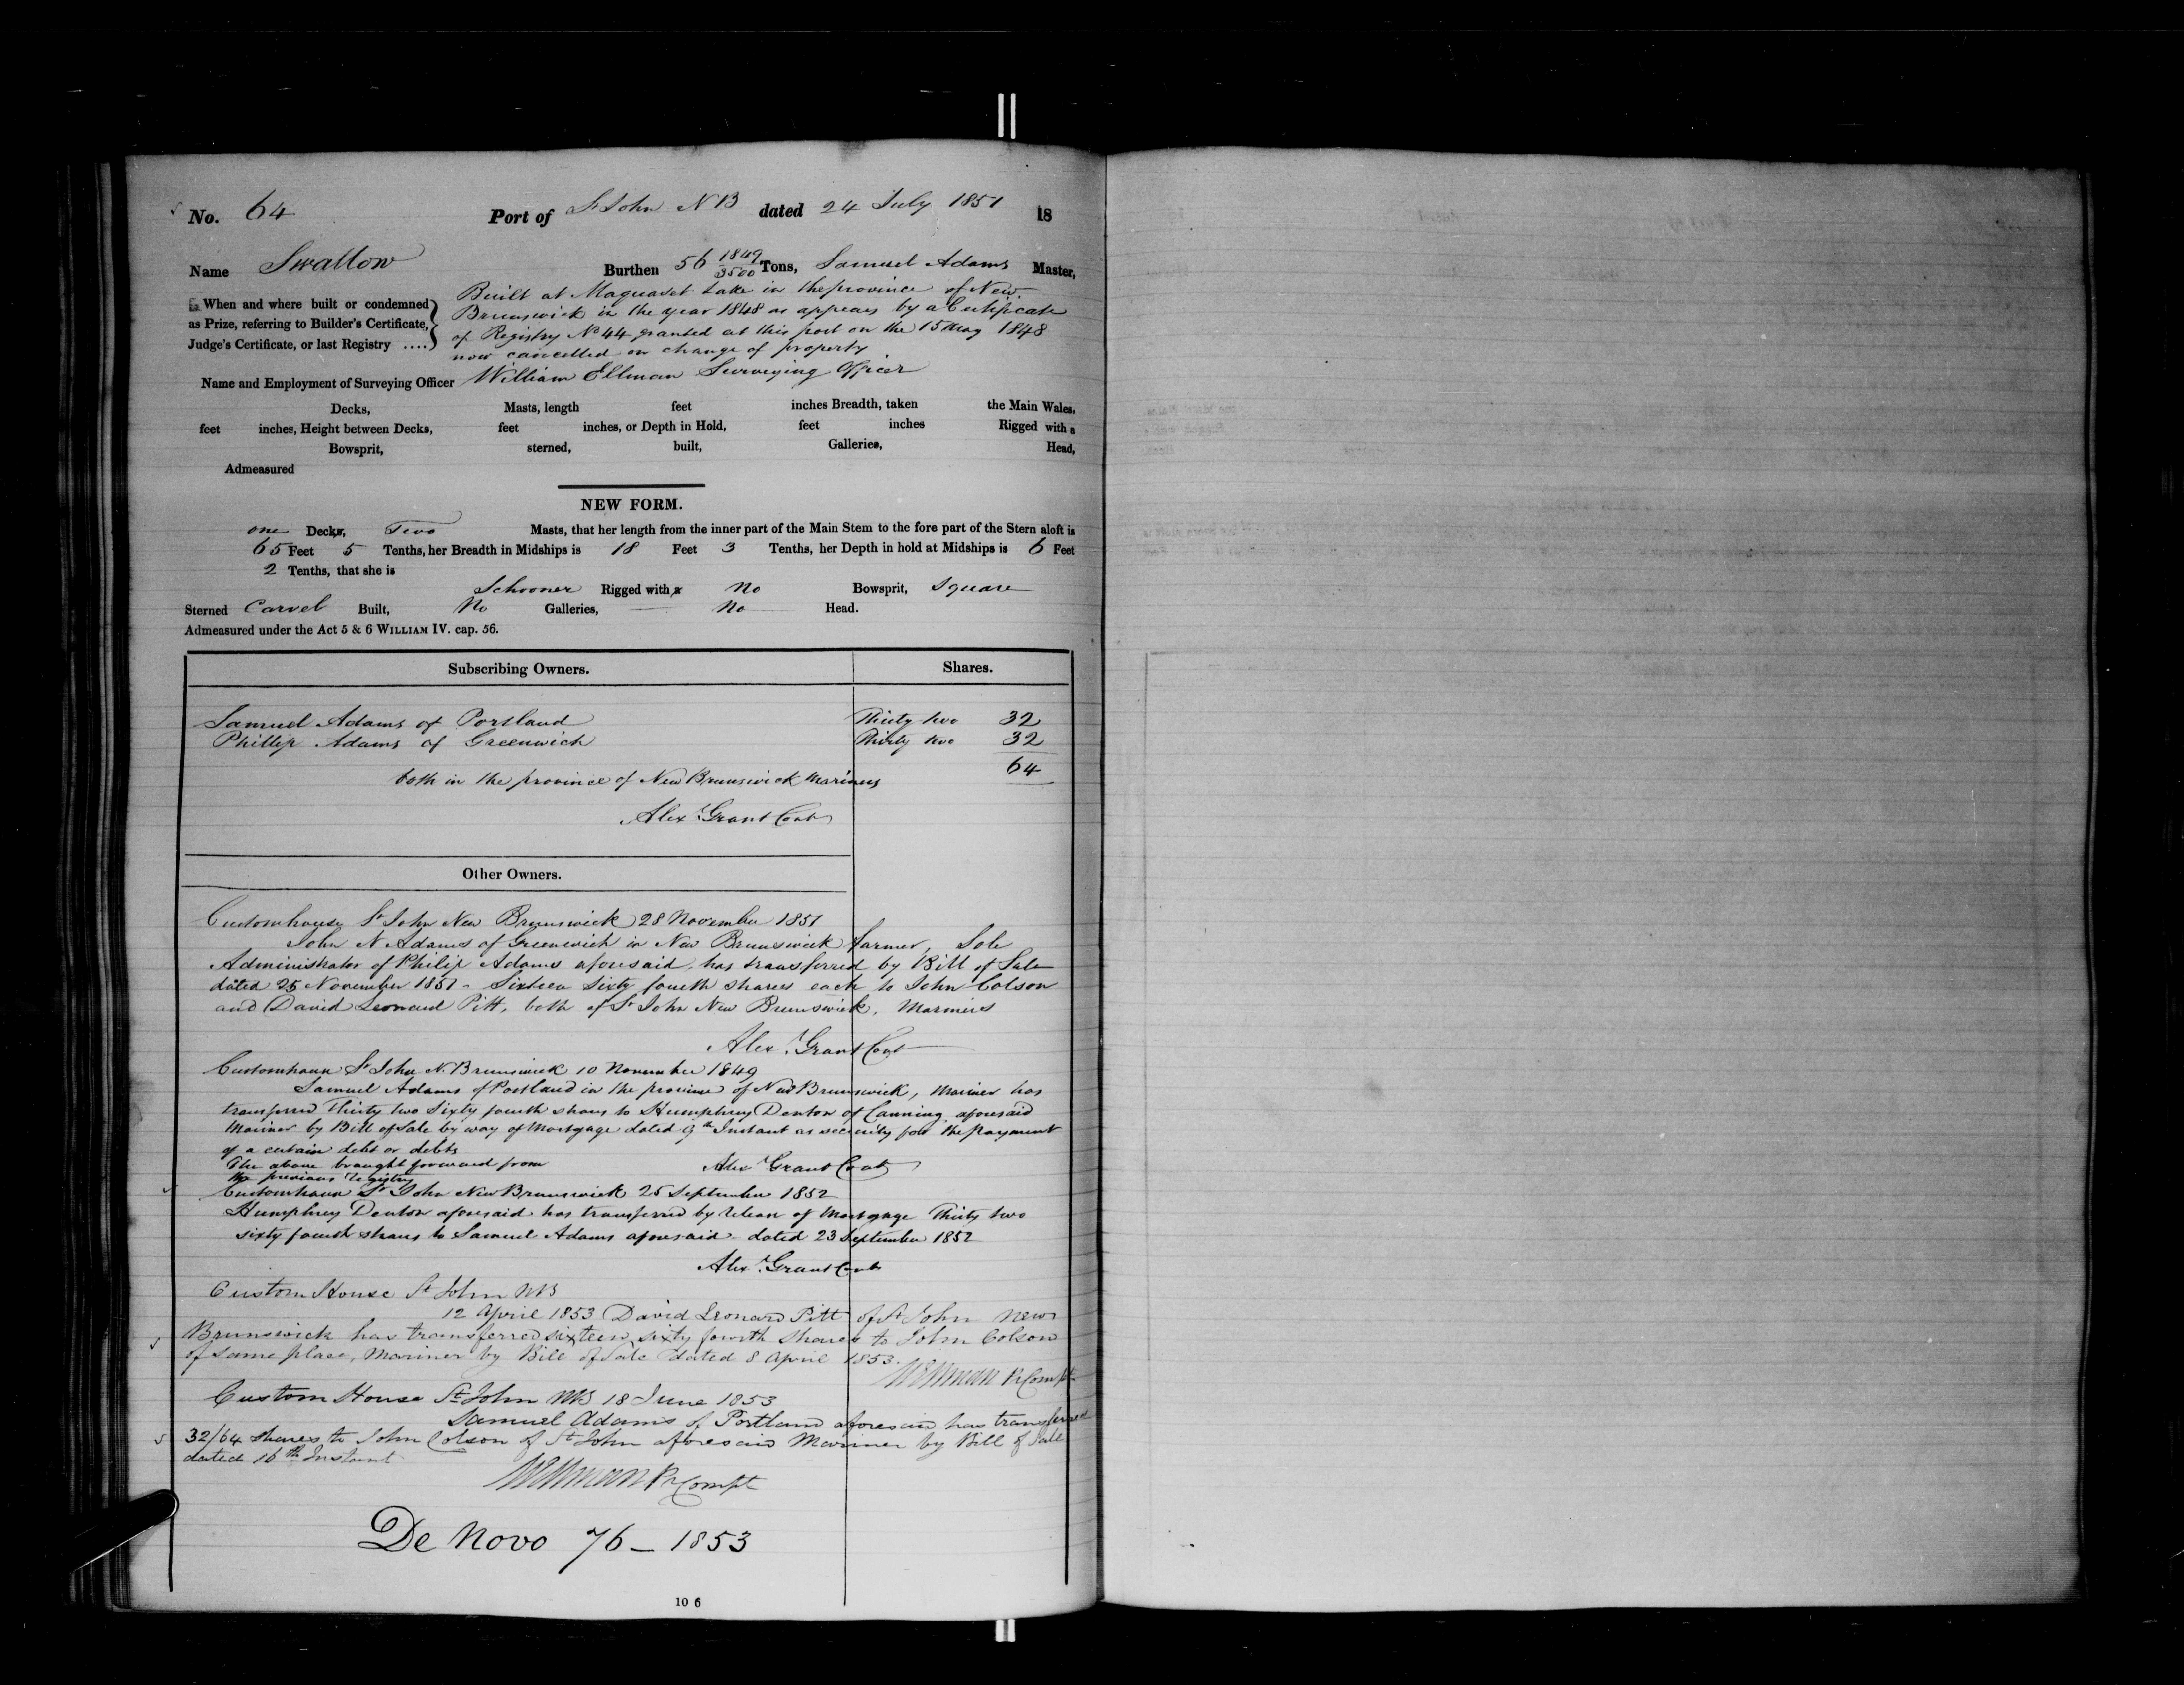 No. 64 Port of St John N B dated 24 July 1851 18
Name Swallow Burthen 56 1849/3500 Tons, Samuel Adams Master,
When and where built or condemned as Prize, referring to Builder's Certificate, Judge's Certificate, or last Registry ....
Built at Maquaset Lake in the province of New
Brunswick in the year 1848 as appears by a Certificate
of Registry No 44 granted at this port on the 15 May 1848
now cancelled on change of property
Name and Employment of Surveying Officer William Ellman Surveying Officer
Decks, Masts, length feet inches Breadth, taken the Main Wales,
feet inches, Height between Decks, feet inches, or Depth in Hold, feet inches Rigged with a
Bowsprit, sterned, built, Galleries, Head,
Admeasured
NEW FORM.
one Decks, Two Masts, that her length from the inner part of the Main Stem to the fore part of the Stern aloft is
65 Feet 5 Tenths, her Breadth in Midships is 18 Feet 3 Tenths, her Depth in hold at Midships is 6 Feet
2 Tenths, that she is
Schooner Rigged with a No Bowsprit, Square
Sterned Carvel Built, No Galleries, No Head.
Admeasured under the Act 5 & 6 WILLIAM IV. cap. 56.
Subscribing Owners. Shares.
Samuel Adams of Portland Thirty two 32
Phillip Adams of Greenwich Thirty two 32
64
both in the province of New Brunswick Mariners
Alex. Grant Cont
Other Owners.
Customhouse St John New Brunswick 28 November 1851
John N Adams of Greenwich in New Brunswick farmer, Sole
Administrator of Philip Adams aforesaid, has transferred by Bill of Sale
dated 25 November 1851 - Sixteen Sixty fourth shares each to John Colson
and David Leonard Pitt, both of St John New Brunswick, Mariners
Alex. Grant Cont
Customhouse St John N. Brunswick 10 November 1849
Samuel Adams of Portland in the province of New Brunswick, Mariner has
transferred Thirty two Sixty fourth shares to Humphrey Denton of Canning aforesaid
Mariner by Bill of Sale by way of Mortgage dated 9th Instant as security for the payment
of a certain debt or debts
The above brought forward from Alex. Grant Cont
the previous Registry
Customhouse St John New Brunswick 25 September 1852
Humphrey Denton aforesaid has transferred by release of Mortgage Thirty two
sixty fourth shares to Samuel Adams aforesaid - dated 23 September 1852
Alex. Grant Cont
Custom House St John NB
12 April 1853 David Leonard Pitt of St John New
Brunswick has transferred sixteen sixty fourth shares to John Colson
of same place, Mariner by Bill of Sale dated 8 April 1853.
WEllman Pr Compt
Custom House St John NB 18 June 1853
Samuel Adams of Portland aforesaid has transferred
32/64 shares to John Colson of St John aforesaid Mariner by Bill of Sale
dated 16th Instant
WEllman Pr Compt
De Novo 76 - 1853
10 6